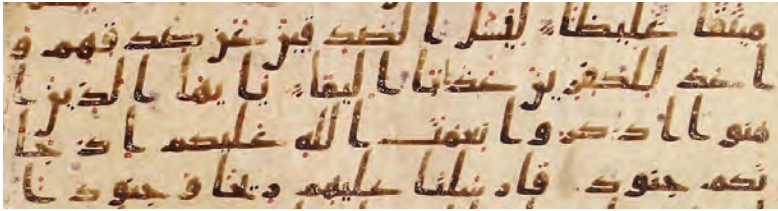 ميثقا غليظا ليسل الصدقين عن صدقهم و
اعد للكفرين عذابا اليما يايها الذين ا
منوا اذكروا نعمت الله عليكم اذ جا
تكم جنود فارسلنا عليهم ريحا و جنودا